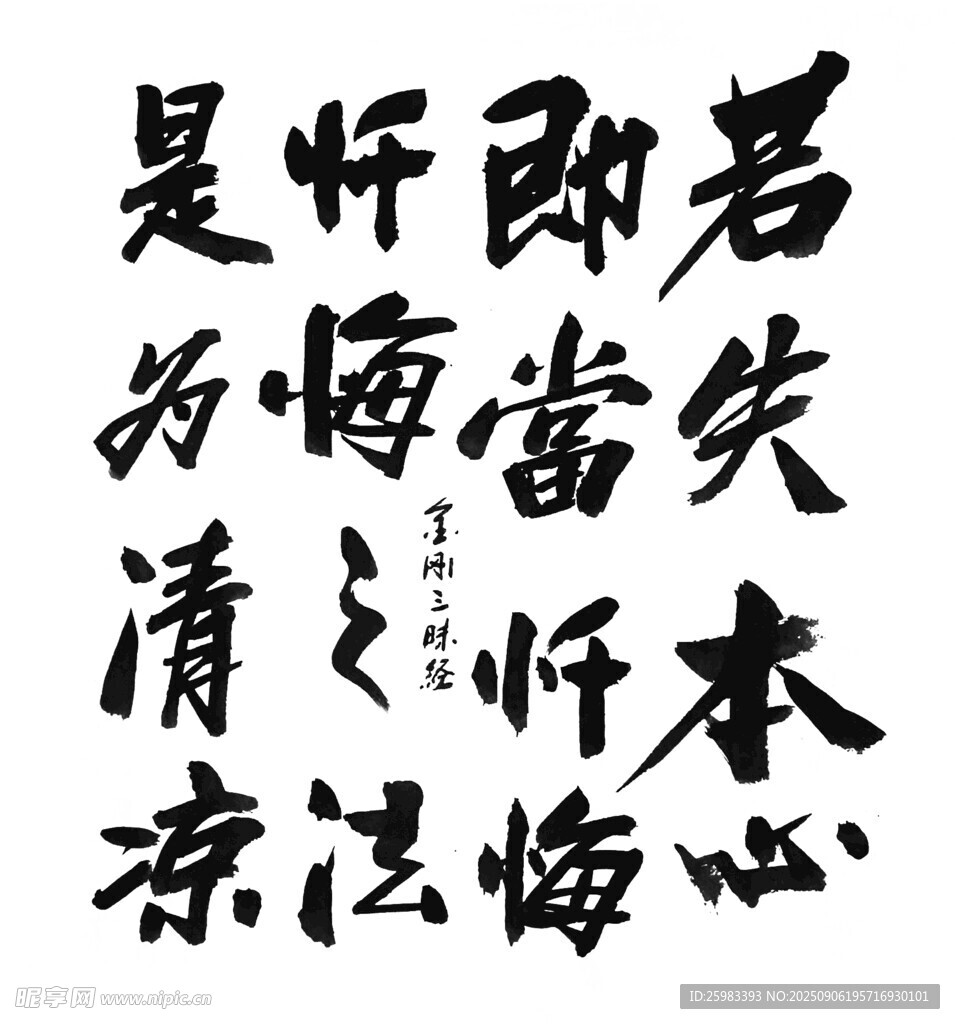 若失本心
即當忏悔
忏悔之法
是为清凉
金刚三昧经
昵享网 www.nipic.cn
ID:25983393 NO:20250906195716930101